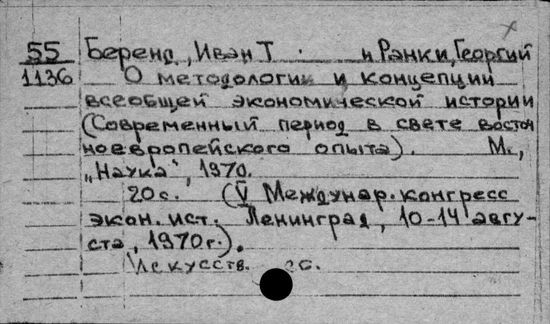 55 Беренд, Иван Т. и Рэнки, Георгий
1136 О методологии и концепции
всеобщей экономической истории
(Современный период в свете восточ
ноевропейского опыта). М.,
„Наука", 1970.
20с. (V Междунар. конгресс
экон. ист. Ленинград, 10-14 авгу-
ста, 1970г.).
Искусств. об.